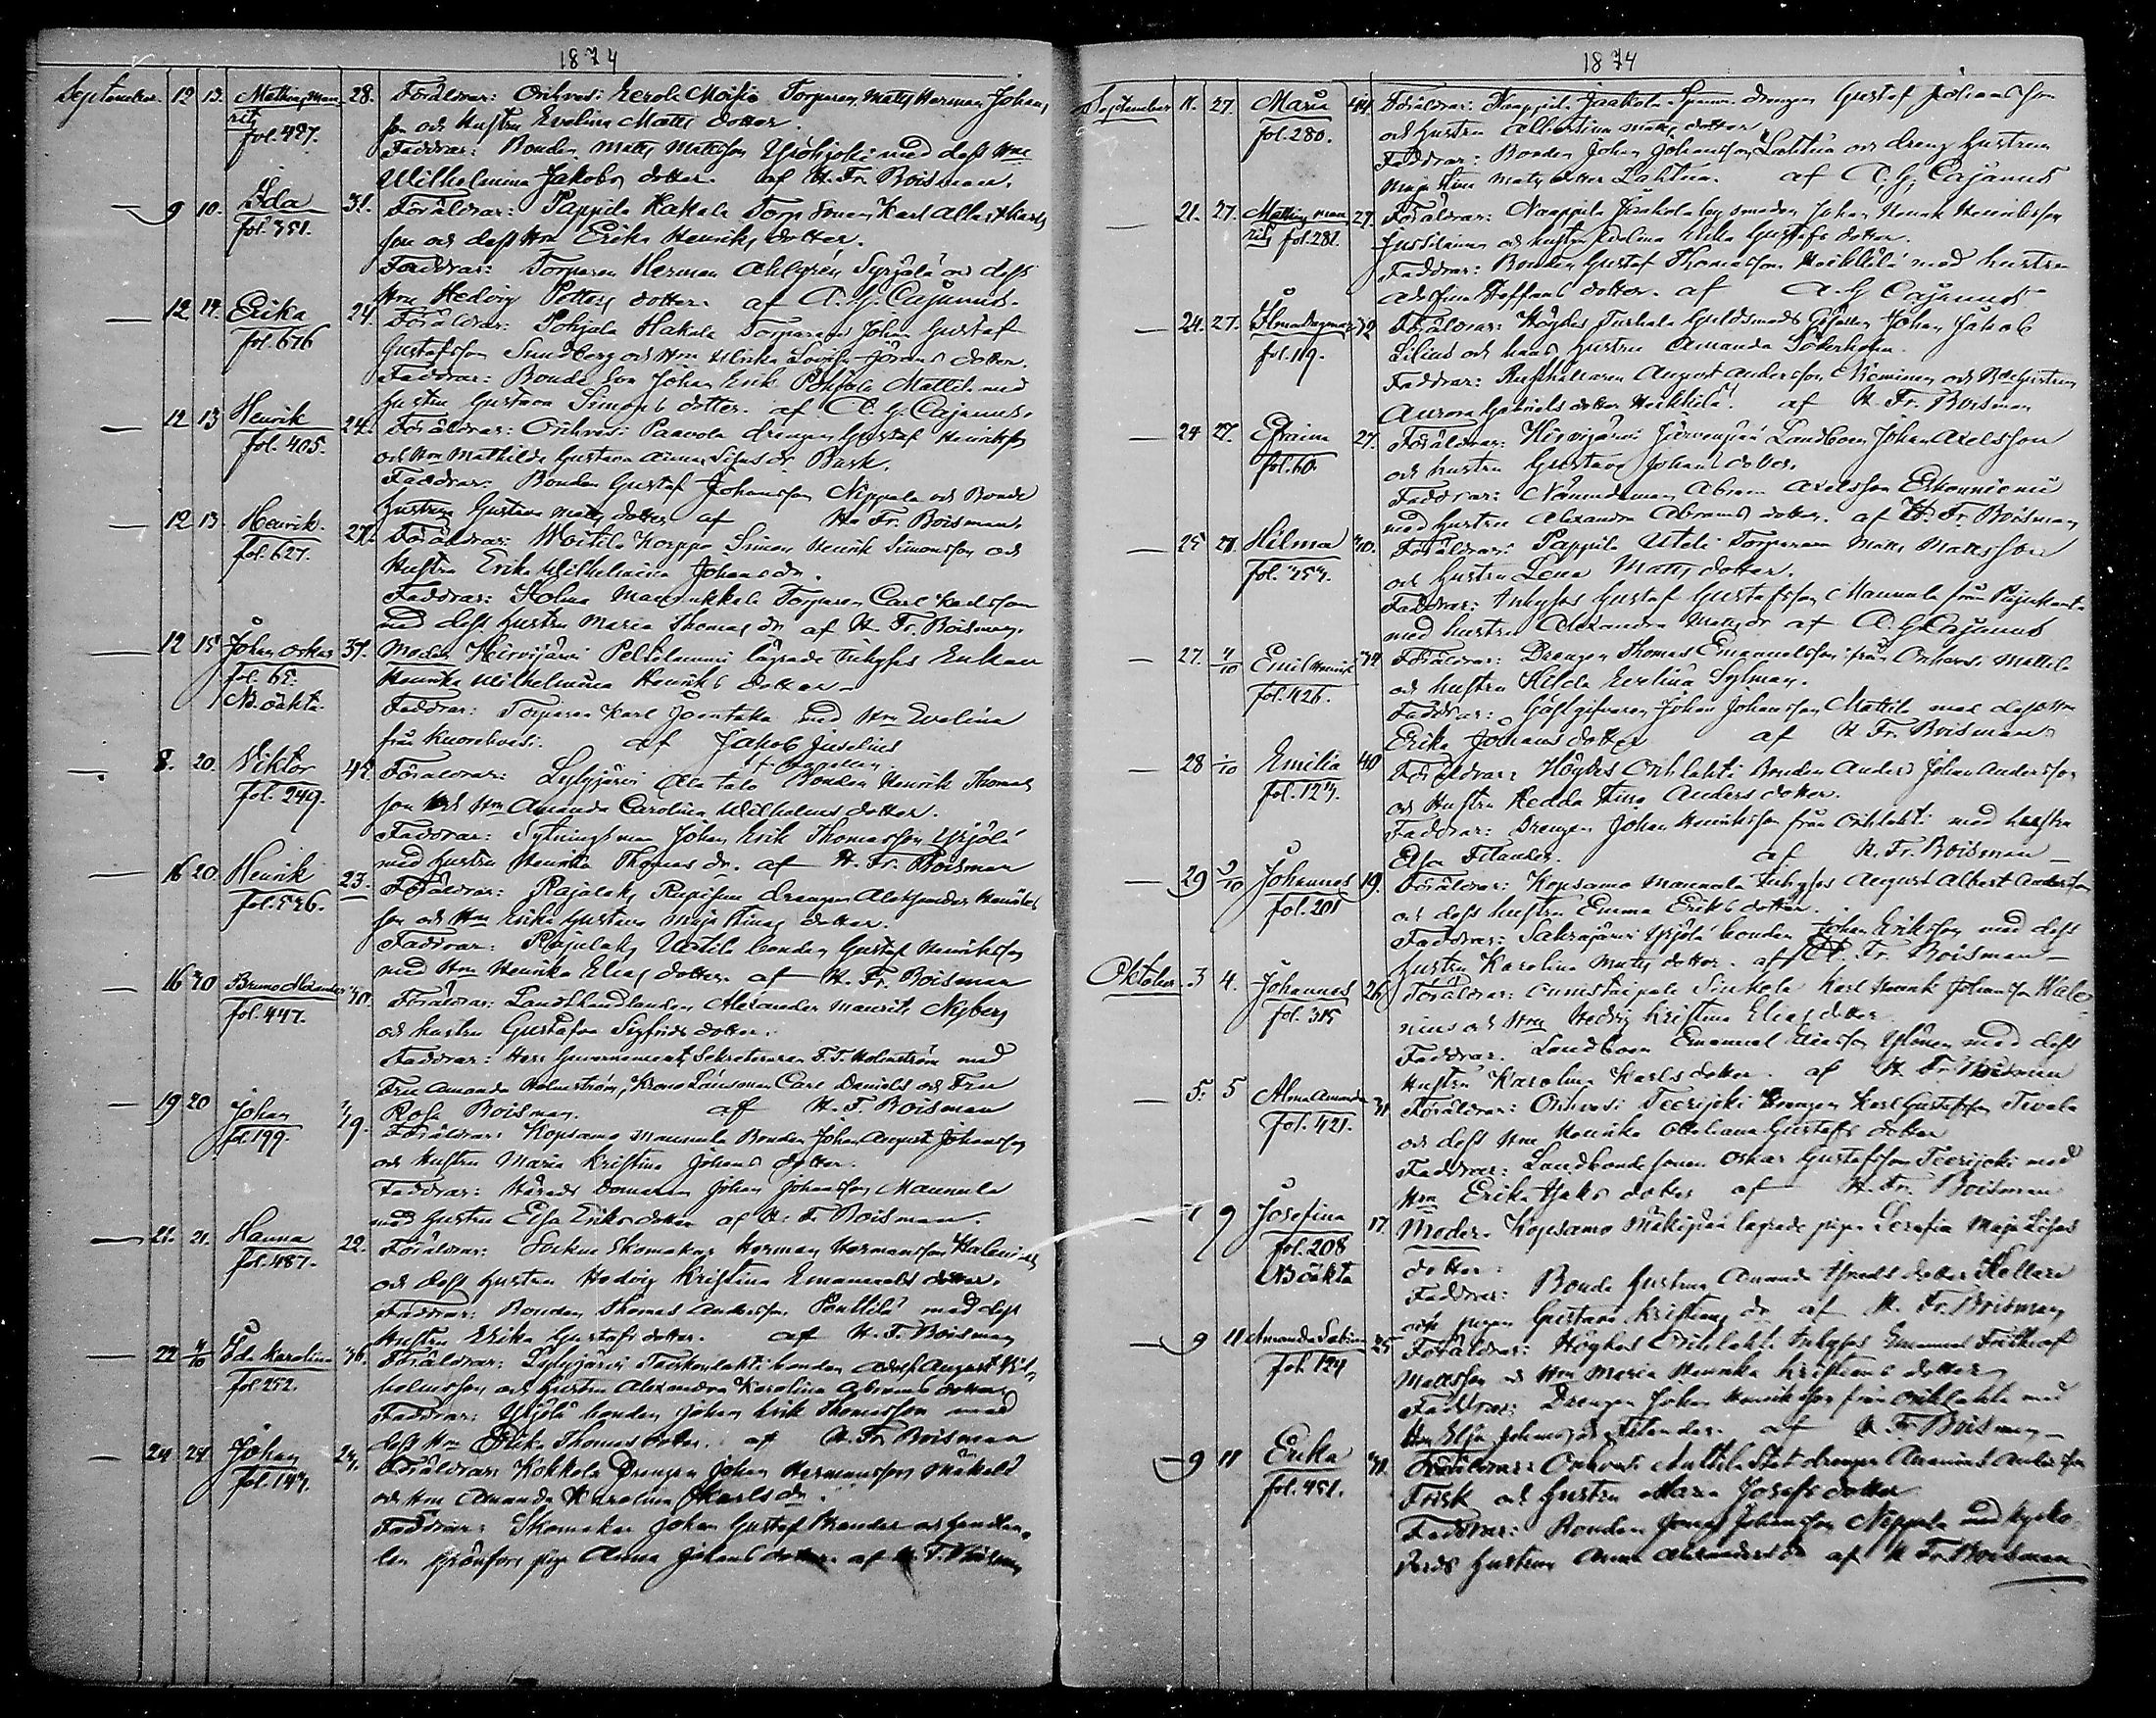 1874
September. 12 13. Mathias Mau- 28. Föräldrar: Orihvesi Eerola Moisio Torparen Matts Herman Johans
ritz son och Hustru Evelina Matts dotter.
fol. 427. Faddrar: Bonden Matts Mattsson Yliskjoki med dess Hru
Wilhelmina Jakobs dotter. af H. Fr. Boisman.
— 9 10. Ida 31. Föräldrar: Pappila Hakala Torp Karl Albert Karls
fol. 351. son och dess Hru Erika Henriks dotter.
Faddrar: Torparen Herman Ahlgrén Syrjälä och dess
Hru Hedvig dotter. af A. G. Cajanus.
— 12 14. Erika 24. Föräldrar: Pohjala Hakala Torparen Johan Gustaf
fol. 676 Gustafsson Sundberg och Hru Ulrika Lovisa Johans dotter.
Faddrar: Bonde son Johan Erik Pohjola Mattila med
Hustru Gustava Simons dotter. af A. G. Cajanus.
— 12 13 Henrik 24. Föräldrar: Orihvesi Paavola drengen Gustaf Henriksson
fol. 405. och Hru Mathilda Gustava Dr Bask.
Faddrar: Bonden Gustaf Johansson Neppala och Bonde
Hustrun Gustava Matts dotter af H. Fr. Boisman.
— 12 13. Henrik. 27. Föräldrar: Woitila Korppo Simon Henrik Simonsson och
fol. 627. Hustru Erika Wilhelmina Johansdr.
Faddrar: Torparen Carl Karlsson
med dess hustru Maria Thomas dr af H. Fr. Boisman.
— 12 15 Johan Oskar 31. Moder: Hirvijärvi Peltolammi lägrade Inhyses Enkan
fol. 65. Henrika Wilhelmina Henriks dotter —
NB. oäkta. Faddrar: Torparen Karl med Hru Evelina
från Kuorehvesi. af Jakob Juselius
— 8. 20. Viktor 42 Föräldrar: Lylyjärvi Ala talo Bonden Henrik Thomas
fol. 249. son och Hru Amanda Carolina Wilhelms dotter.
Faddrar: Sytningsman Johan Erik Thomasson Yrjölä
med hustru Henrika Thomas dr. af H. Fr. Boisman
— 16 20. Henrik 23. Föräldrar: Rajalaks drengen Alexander Henriks
fol. 526. son och Hru Erika Gustava Maja Stina dotter.
Faddrar: Rajalaks Uotila bonden Gustaf Henriksson
med Hru Henrika Elias dotter. af H. Fr. Boisman
— 16 20 Bruno Alexander 40. Föräldrar: Landthandlanden Alexander Maurits Nyberg
fol. 447. och hustru Gustafva Sigfrids dotter.
Faddrar: Herr Guvernements Sekreteraren F. F. Holmström med
Fru Amanda Holmström, Krono Länsman Carl Daniels och Fru
Rosa Boisman. af H. F. Boisman
— 19 20 Johan 19. Föräldrar: Kopsamo Mannala Bonden Johan August Johansson
fol. 199. och Hustru Maria Kristina Johans dotter.
Faddrar: Härads Domaren Johan Johansson Mannila
med hustru Elsa Eriks dotter af H. Fr Boisman.
— 21. 21. Hanna 22. Föräldrar: Sockne Skomakar Herman Hermansson Halenius
fol. 487. och dess hustru Hedvig Kristina Emanuels dotter.
Faddrar: Bonden Thomas Andersson Penttilä med dess
Hustru Erika Gustafs dotter. af H. F. Boisman
— 22 4/10 Ida Karolina 36. Föräldrar: Lylyjärvi bonden Adolf August Wil-
fol. 252. helmsson och hustru Alexandra Karolina Abrams dotter
Faddrar: Yrjölä bonden Johan Erik Thomasson med
dess Hru Erika Thomas dotter. af H. Fr Boisman
— 24 24. Johan 24. Föräldrar: Kokkola Drengen Johan Hermansson Mäkelä
fol. 147. och Hru Amanda Karolina Karls dr.
Faddrar: Skomakar Johan Gustaf Brander och
pige Anna Johans dotter. af H. F. Boisman
1874
September 11. 27. Maria 44. Föräldrar: Pappila Jaakola drengen Gustaf Johansson
fol. 280. och hustru Albertina Matts dotter
Faddrar: Bonden Johan Johansson Lahtua och dreng hustrun
Maja Stina Matts dotter Lahtua. af A. G. Cajanus
— 21. 27. Mathias Mau- 27. Föräldrar: Pappila Jaakola by smeden Johan Henrik Henriksson
ritz fol. 281. och hustru Adolina Erika Gustafs dotter.
Faddrar: Bonden Gustaf Thomasson Heikkilä med hustru
Adolfina Steffans dotter. af A. G Cajanus
— 24. 27. Ilma Dagmar 32 Föräldrar: Högdes Turkala Guldsmeds Gesällen Johan Jakob
fol. 119. Lilius och hans hustru Amanda Söderholm.
Faddrar: Rusthållaren August Andersson Nieminen och hustrun
Aurora Gabriels dotter Heikkilä. af H. Fr. Boisman
— 24 27. Efraim 27. Föräldrar: Hirvijärvi Järvenpää Landbon Johan Axelsson
fol. 60. och hustru Gustava Johans dotter.
Faddrar: Nämndeman Abram Axelsson Eskonniemi
med hustru Alexandra Abrams dotter. af H. Fr Boisman
— 25 27. Hilma 30. Föräldrar: Pappila Uteli Torparen Matts Mattsson
fol. 357. och hustru Lena Matts dotter.
Faddrar: Inhyses Gustaf Gustafsson Mannala från
med hustru Alexandra Matts dr af A. G. Cajanus
— 27. 4/10 Emil Henrik 34 Föräldrar: Drengen Thomas Emanuelsson från Orihvesi Mattila
fol. 426. och hustru Hilda Evelina Sylman.
Faddrar: Gästgifvaren Johan Johansson Mattila med dess Hru
Erika Johans dotter af H. Fr. Boisman
— 28 1/10 Emilia 40 Föräldrar: Högdes Orihlahti Bonden Anders Johan Andersson
fol. 127. och Hustru Hedda Stina Anders dotter.
Faddrar: Drengen Johan Henriksson från Orihlahti med hustru
Elsa Filander. af H. Fr. Boisman —
— 29 3/10 Johannes 19. Föräldrar: Kopsamo Mannala Inhyses August Albert Andersson
fol. 201 och dess hustru Emma Eriks dotter.
Faddrar: Sahrajärvi Yrjölä bonden Johan Eriksson med dess
hustru Karolina Matts dotter. af H. Fr. Boisman —
Oktober 3 4. Johannes 26 Föräldrar: Sinkola Karl Henrik Johansson Hale-
fol. 315 nius och Hru Hedvig Kristina Elias dotter
Faddrar. Landbon Emanuel Eliasson Ylönen med dess
Hustru Karolina Karls dotter. af H. Fr. Boisman
— 5. 5 Alma Amanda 31 Föräldrar: Orihvesi Teerijoki Drengen Karl Gustafsson Tevala
fol. 421. och dess Hru Henrika Gustafs dotter
Faddrar: Landbonde sonen Oskar Gustafsson Teerijoki med
Hru Erika Isaks dotter af H. Fr. Boisman
— 9 Josefina 17. Moder. Kopsamo Mäkipää lägrade pigan Serafia Maja Lisas
fol. 208 dotter.
NB oäkta Faddrar: Bonde hustrun Amanda dotter Kellari
och pigan Gustava Kristians dr af H. Fr. Boisman
— 9 11 Amanda Sabina 25 Föräldrar: Högdes Orihlahti Inhyses Emanuel Fridthiof
fol. 124 Mattsson och Hru Maria Henrika Kristians dotter
Faddrar: Drengen Johan Henriksson från Orihlahti med
Hru Elsa Johans dr Filander. af H Fr Boisman —
— 9 11 Erika 31. Föräldrar: Orihvesi Anttila Stat drengen Ananias Andersson
fol. 451. Frisk och hustru Maria Josefs dotter
Faddrar: Bonden Johansson Neppala med kyrko-
värds hustrun Anna Alexanders dr af H Fr. Boisman